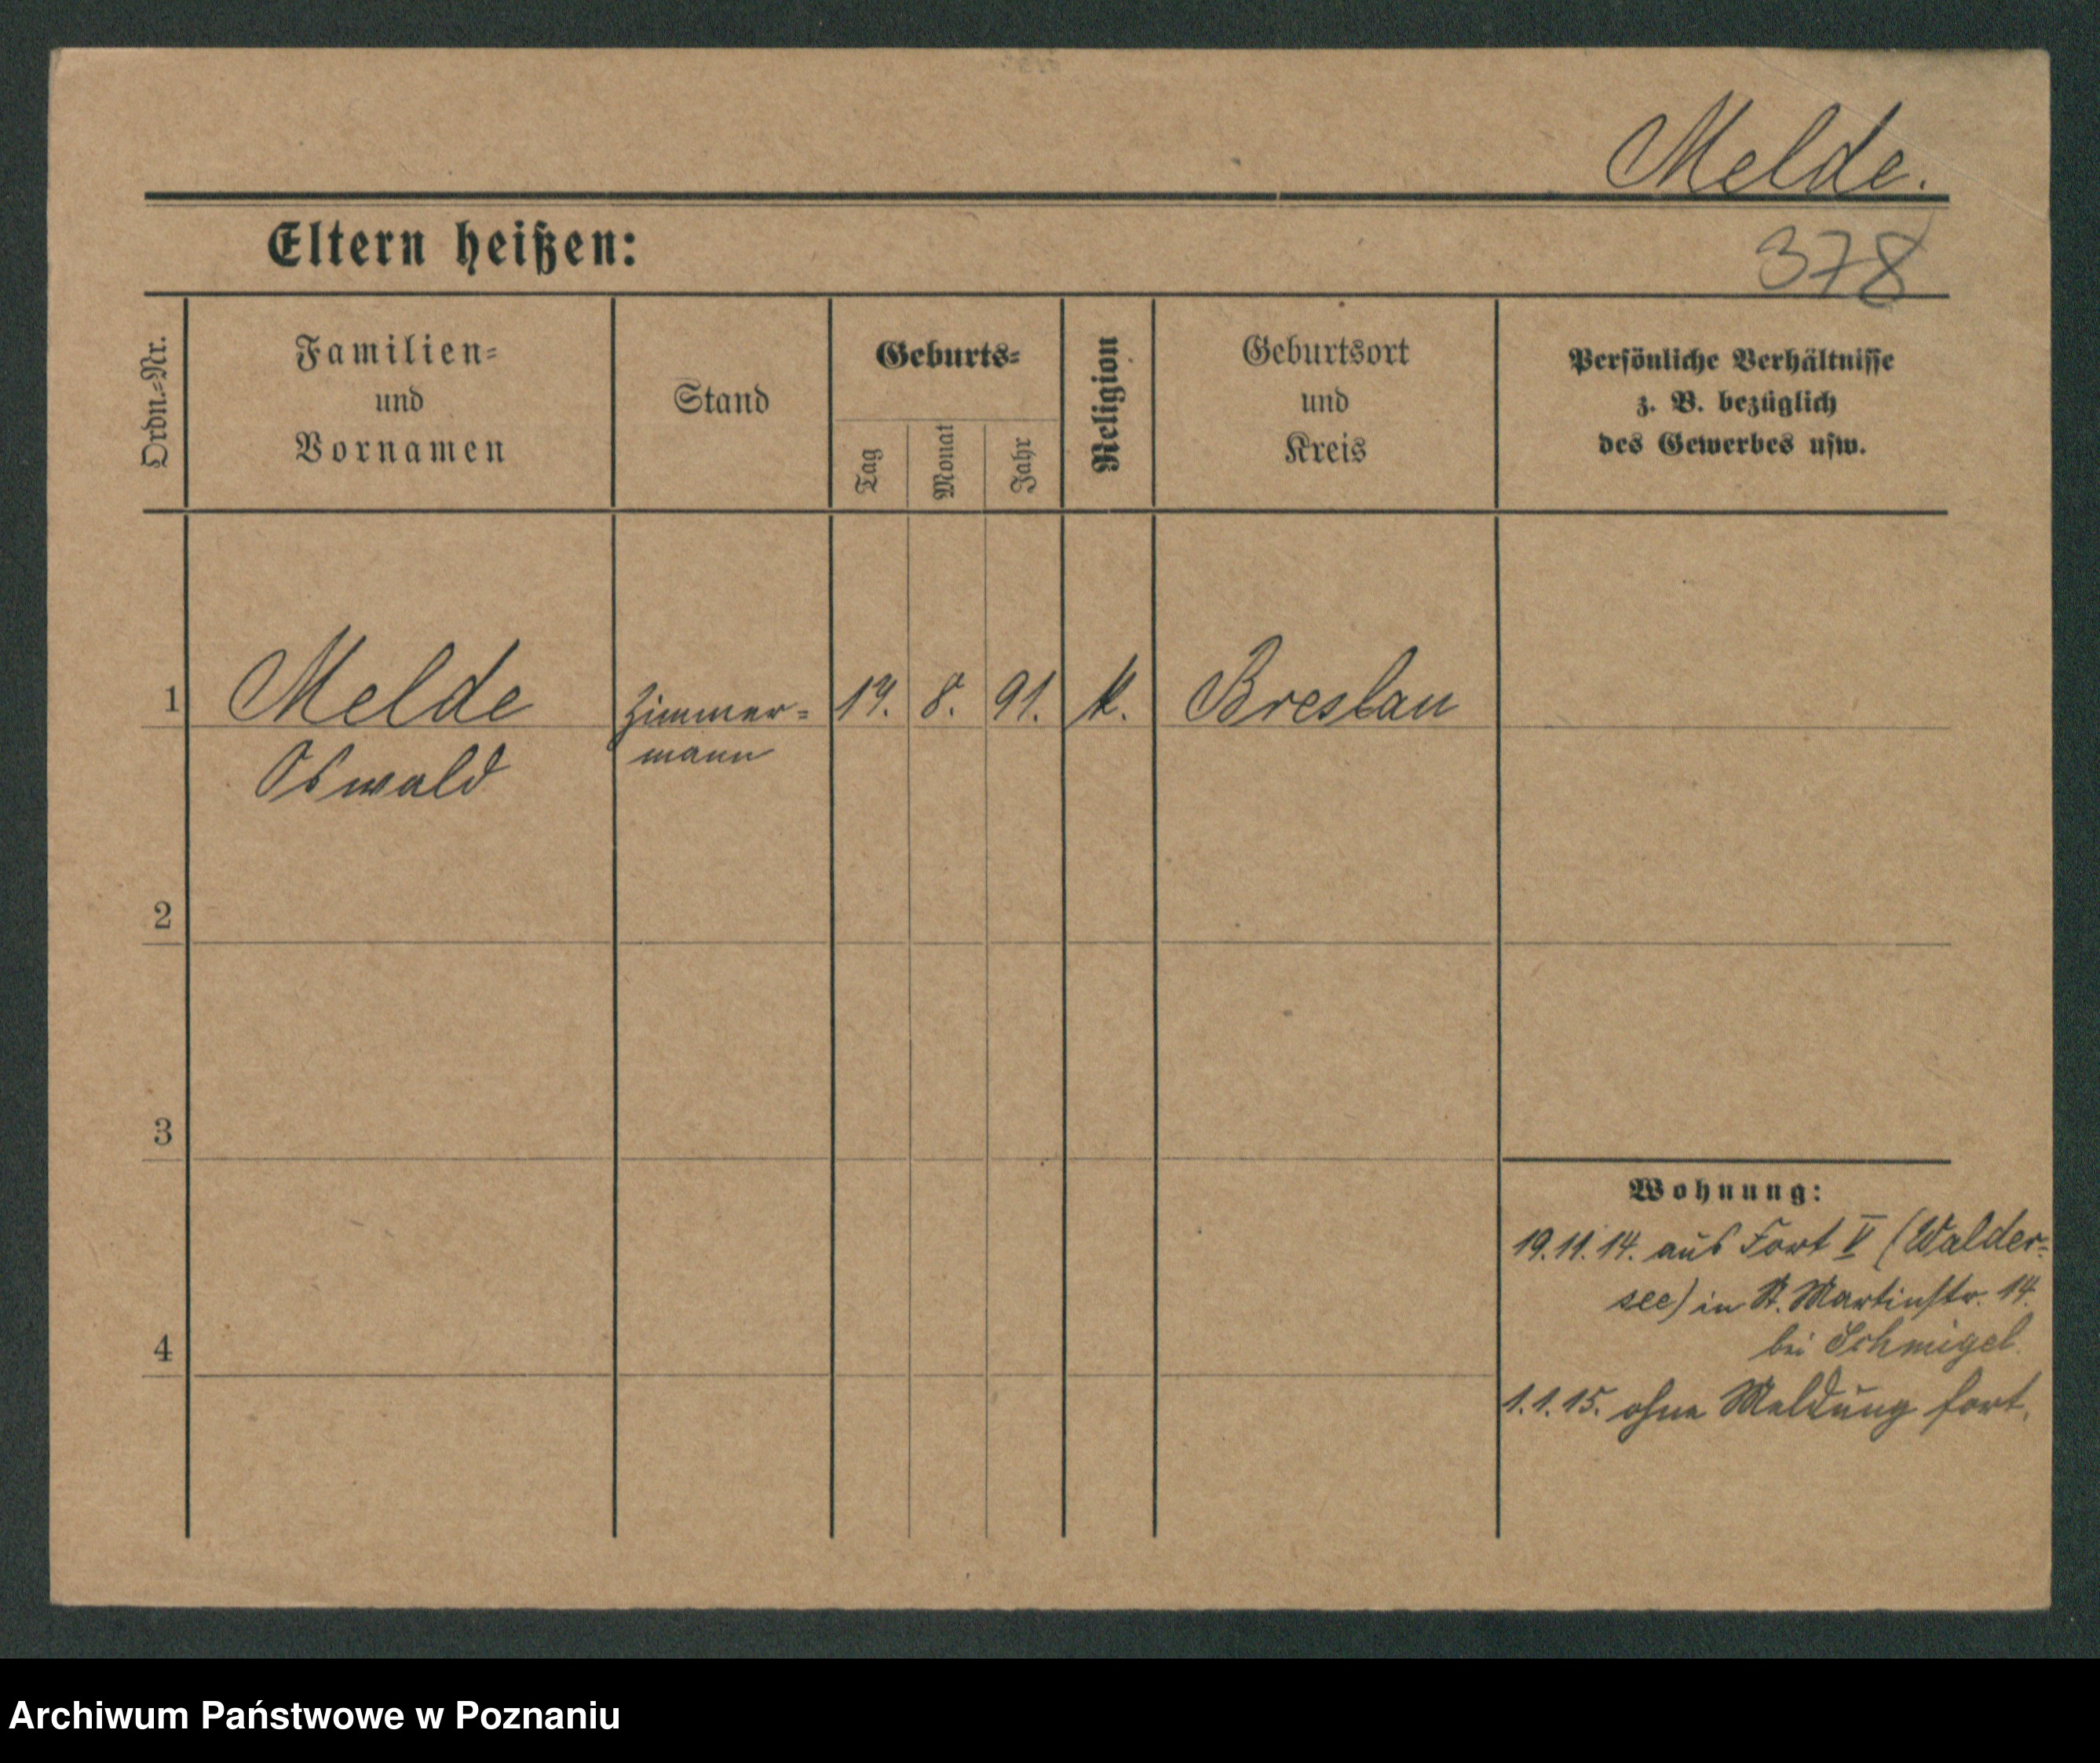 Melde.
Eltern heißen:
378
Ordn.=Nr.
Familien=
und
Vornamen
Stand
Geburts=
Tag
Monat
Jahr
Religion
Geburtsort
und
Kreis
Persönliche Verhältnisse
z. B. bezüglich
des Gewerbes usw.
1 Melde Zimmer= 8. 91. k. Breslau
mann
Oswald
2
3
4
Wohnung:
19.11.14. aus Fort V (Walder=
see) in St. Martinstr. 14.
bei Schmigel.
1.1.15. ohne Meldung fort.
Archiwum Państwowe w Poznaniu